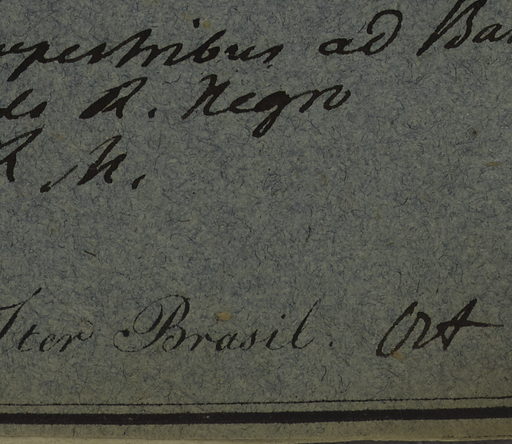 rupestribus ad Bar
do R. Negro
R M.
Iter Brasil. Oct